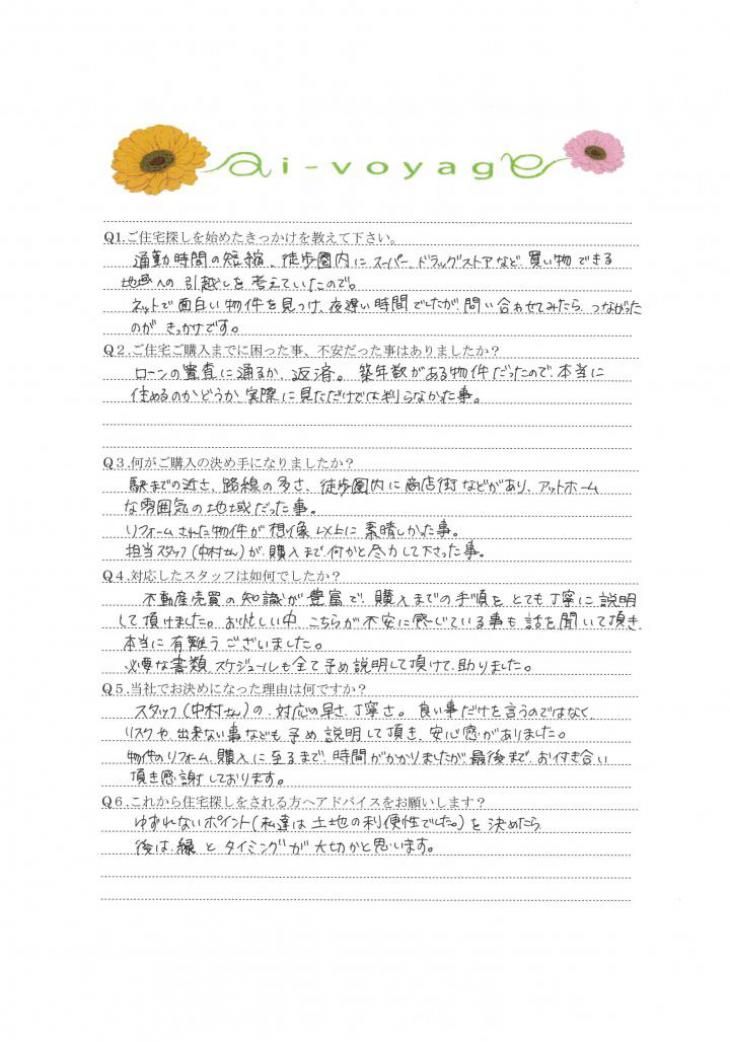 ai-voyage
Q1.ご住宅探しを始めたきっかけを教えて下さい。
通勤時間の短縮、徒歩圏内にスーパー、ドラッグストアなど、買い物できる
地域への引越しを考えていたので。
ネットで面白い物件を見つけ、夜遅い時間でしたが、問い合わせてみたら、つながった
のがきっかけです。
Q2.ご住宅ご購入までに困った事、不安だった事はありましたか？
ローンの審査に通るか、返済。築年数がある物件だったので、本当に
住めるのかどうか、実際に見ただけでは判らなかた事。
Q3.何がご購入の決め手になりましたか？
駅までの近さ、路線の多さ、徒歩圏内に商店街などがあり、アットホーム
な雰囲気の地域だった事。
リフォームされた物件が想像以上に素晴しかった事。
担当スタッフ(中村さん)が、購入まで何かと尽力して下さった事。
Q4.対応したスタッフは如何でしたか？
不動産売買の知識が豊富で、購入までの手順を、とても丁寧に説明
して頂けました。お忙しい中、こちらが不安に感じている事も話を聞いて頂き、
本当に有難うございました。
必要な書類、スケジュールも全て予め説明して頂けて、助りました。
Q5.当社でお決めになった理由は何ですか？
スタッフ(中村さん)の、対応の早さ、丁寧さ。良い事だけを言うのではなく、
リスクや、出来ない事なども予め説明して頂き、安心感がありました。
物件のリフォーム、購入に至るまで、時間がかかりましたが最後まで、お付き合い
頂き感謝しております。
Q6.これから住宅探しをされる方へアドバイスをお願いします？
ゆずれないポイント(私達は土地の利便性でした。)を決めたら
後は、縁とタイミングが大切かと思います。